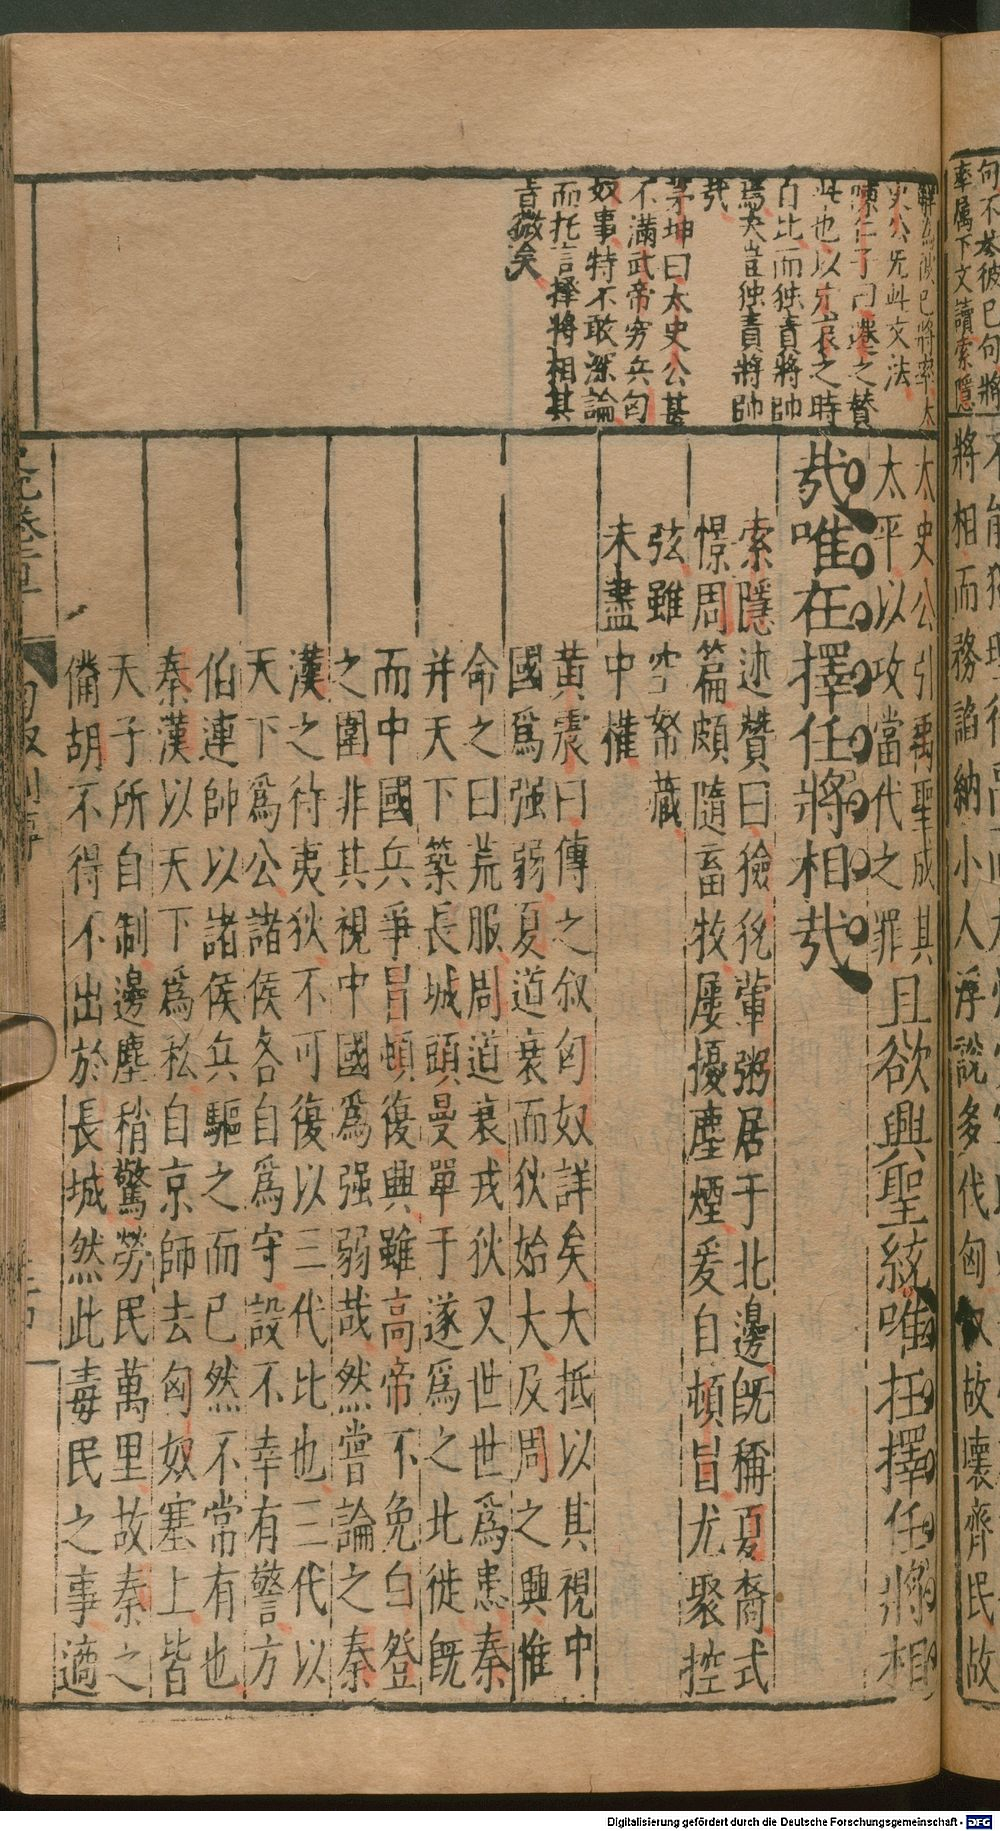 句不參彼已句將
率属下文讀索隱
將相而務諂納小人浮說多代匈奴故壞齊民故
解爲彼已將率太
史公先此文法
陳仁子曰遷之賛
此也以定哀之時
自比而独責將帥
焉夫豈独責將帥
㢤
茅坤曰太史公甚
不滿武帝穷兵匈
奴事特不敢深論
而托言擇將相其
旨微矣
太史公引禹聖成其
太平以攻當代之罪
且欲興聖統唯在擇任將相
㢤唯在擇任將相㢤
索隱述贊曰獫狁葷粥居于北邊旣稱夏裔式
憬周篇頗隨畜牧屢擾塵煙爰自頓旨尤聚控
弦雖空帑藏
未盡中權
黃震曰傳之叙匈奴詳矣大抵以其視中
國爲强弱夏道衰而狄始大及周之興惟
命之曰荒服周道衰戎狄又世世爲患秦
并天下築長城頭曼單于遂爲之北徙旣
而中國兵爭冒頓復興雖高帝不免白登
之圍非其視中國爲强弱哉然嘗論之秦
漢之待夷狄不可復以三代比也三代以
天下爲公諸侯各自爲守設不幸有警方
伯連帥以諸侯兵驅之而已然不常有也
秦漢以天下爲私自京師去匈奴塞上皆
天子所自制邊塵稍驚勞民萬里故秦之
備胡不得不出於長城然此毒民之事適
匈奴列傳
Digitalisierung gefördert durch die Deutsche Forschungsgemeinschaft - DFG